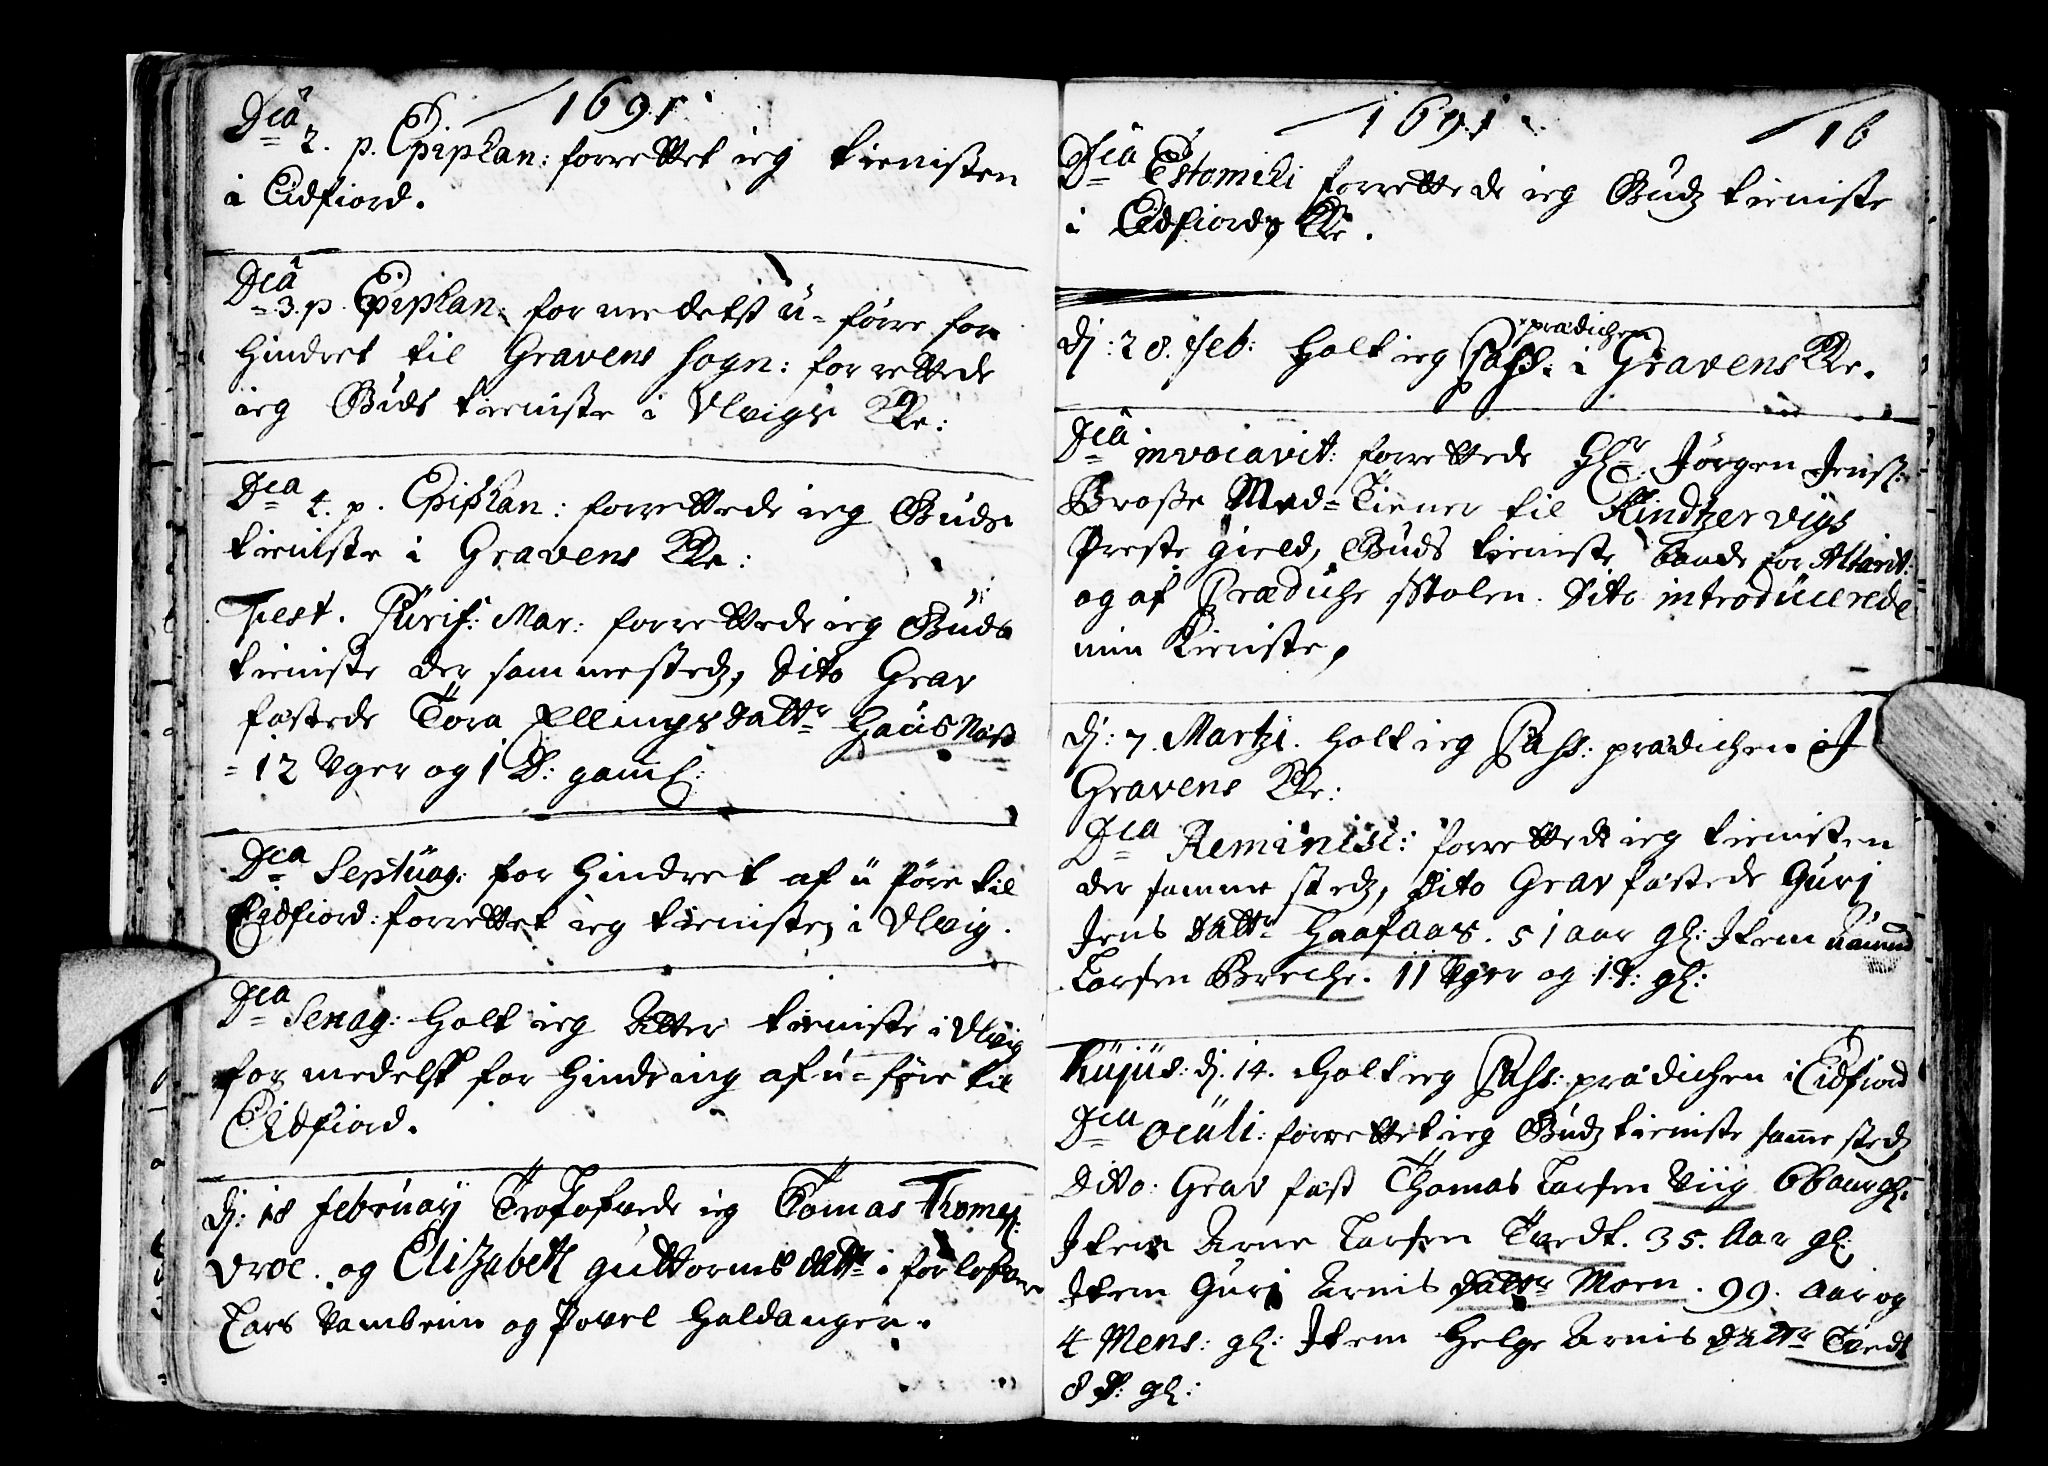 1691.
Dca 2. p. Epiphan: forrettet ieg tienisten
i Eidfiord.
Dca 3. p. Epiphan: formedelst u-føre for
hindret til Gravens sogn: forrettede
ieg Guds tieniste i Ulvigs Kke:
Dca 4. p. Epiphan: forrettede ieg Guds
tieniste i Gravens Kke:
Fest. Purif: Mar: forrettede ieg Guds
tieniste der sammestedz, Dito Grav
fæstede Tora Ellings dattr Haüs Næs
12 Uger og 1 D: gaml:
Dca Septuag: forhindret af u føre til
Eidfiord: forrettet ieg tienisten i Ulvig.
Dca Sexag: holt ieg Atter tieniste i Ulvig
formedelst forhindring af u-føre til
Eidfiord.
Dj: 18 februarij Trolofvede ieg Tomas Thomes:
og Elizabeth guttorms dattr: forlofvere
Lars Vambeim og Povel Haldanger.
1691
16
Dca Estomihi forrettede ieg Gudz tieniste
i Eidfiordz Kke.
Dj: 28. feb: holt ieg Pass: prædichen i Gravens Kke.
Dca invocavit: forrettede Hr: Jørgen Jens:
Brosse Med-Tiener til Kindzervigs
Preste gield, Guds tieniste baade for Altaret:
og af Prædiche stolen. Dito introducerede
min Kieniste,
Dj: 7. Martzi. holt ieg Pass: prædichen i
Gravens Kke:
Dca Reminisc: forrettede ieg tienisten
der samme stedz, Dito Grav fæstede Gurj
Jens dattr Haafaas. 51 aar gl: Item Aamund
Larsen Breche. 11 Uger og 1 D: gl:
Hujus: dj. 14. holt ieg Pass: prædichen i Eidfiord
Dca Oculi: forrettet ieg Gudz tieniste samme stedz
Dito: Grav fæst Thomas Larsen Viig 66 aar gl:
Item Arne Larsen Tvedt. 35. Aar gl:
Item Gurj Arnis dattr Moen. 99. aar og
4 Mens: gl: Item Helge Arnis dattr Tvedt
8 D: gl: